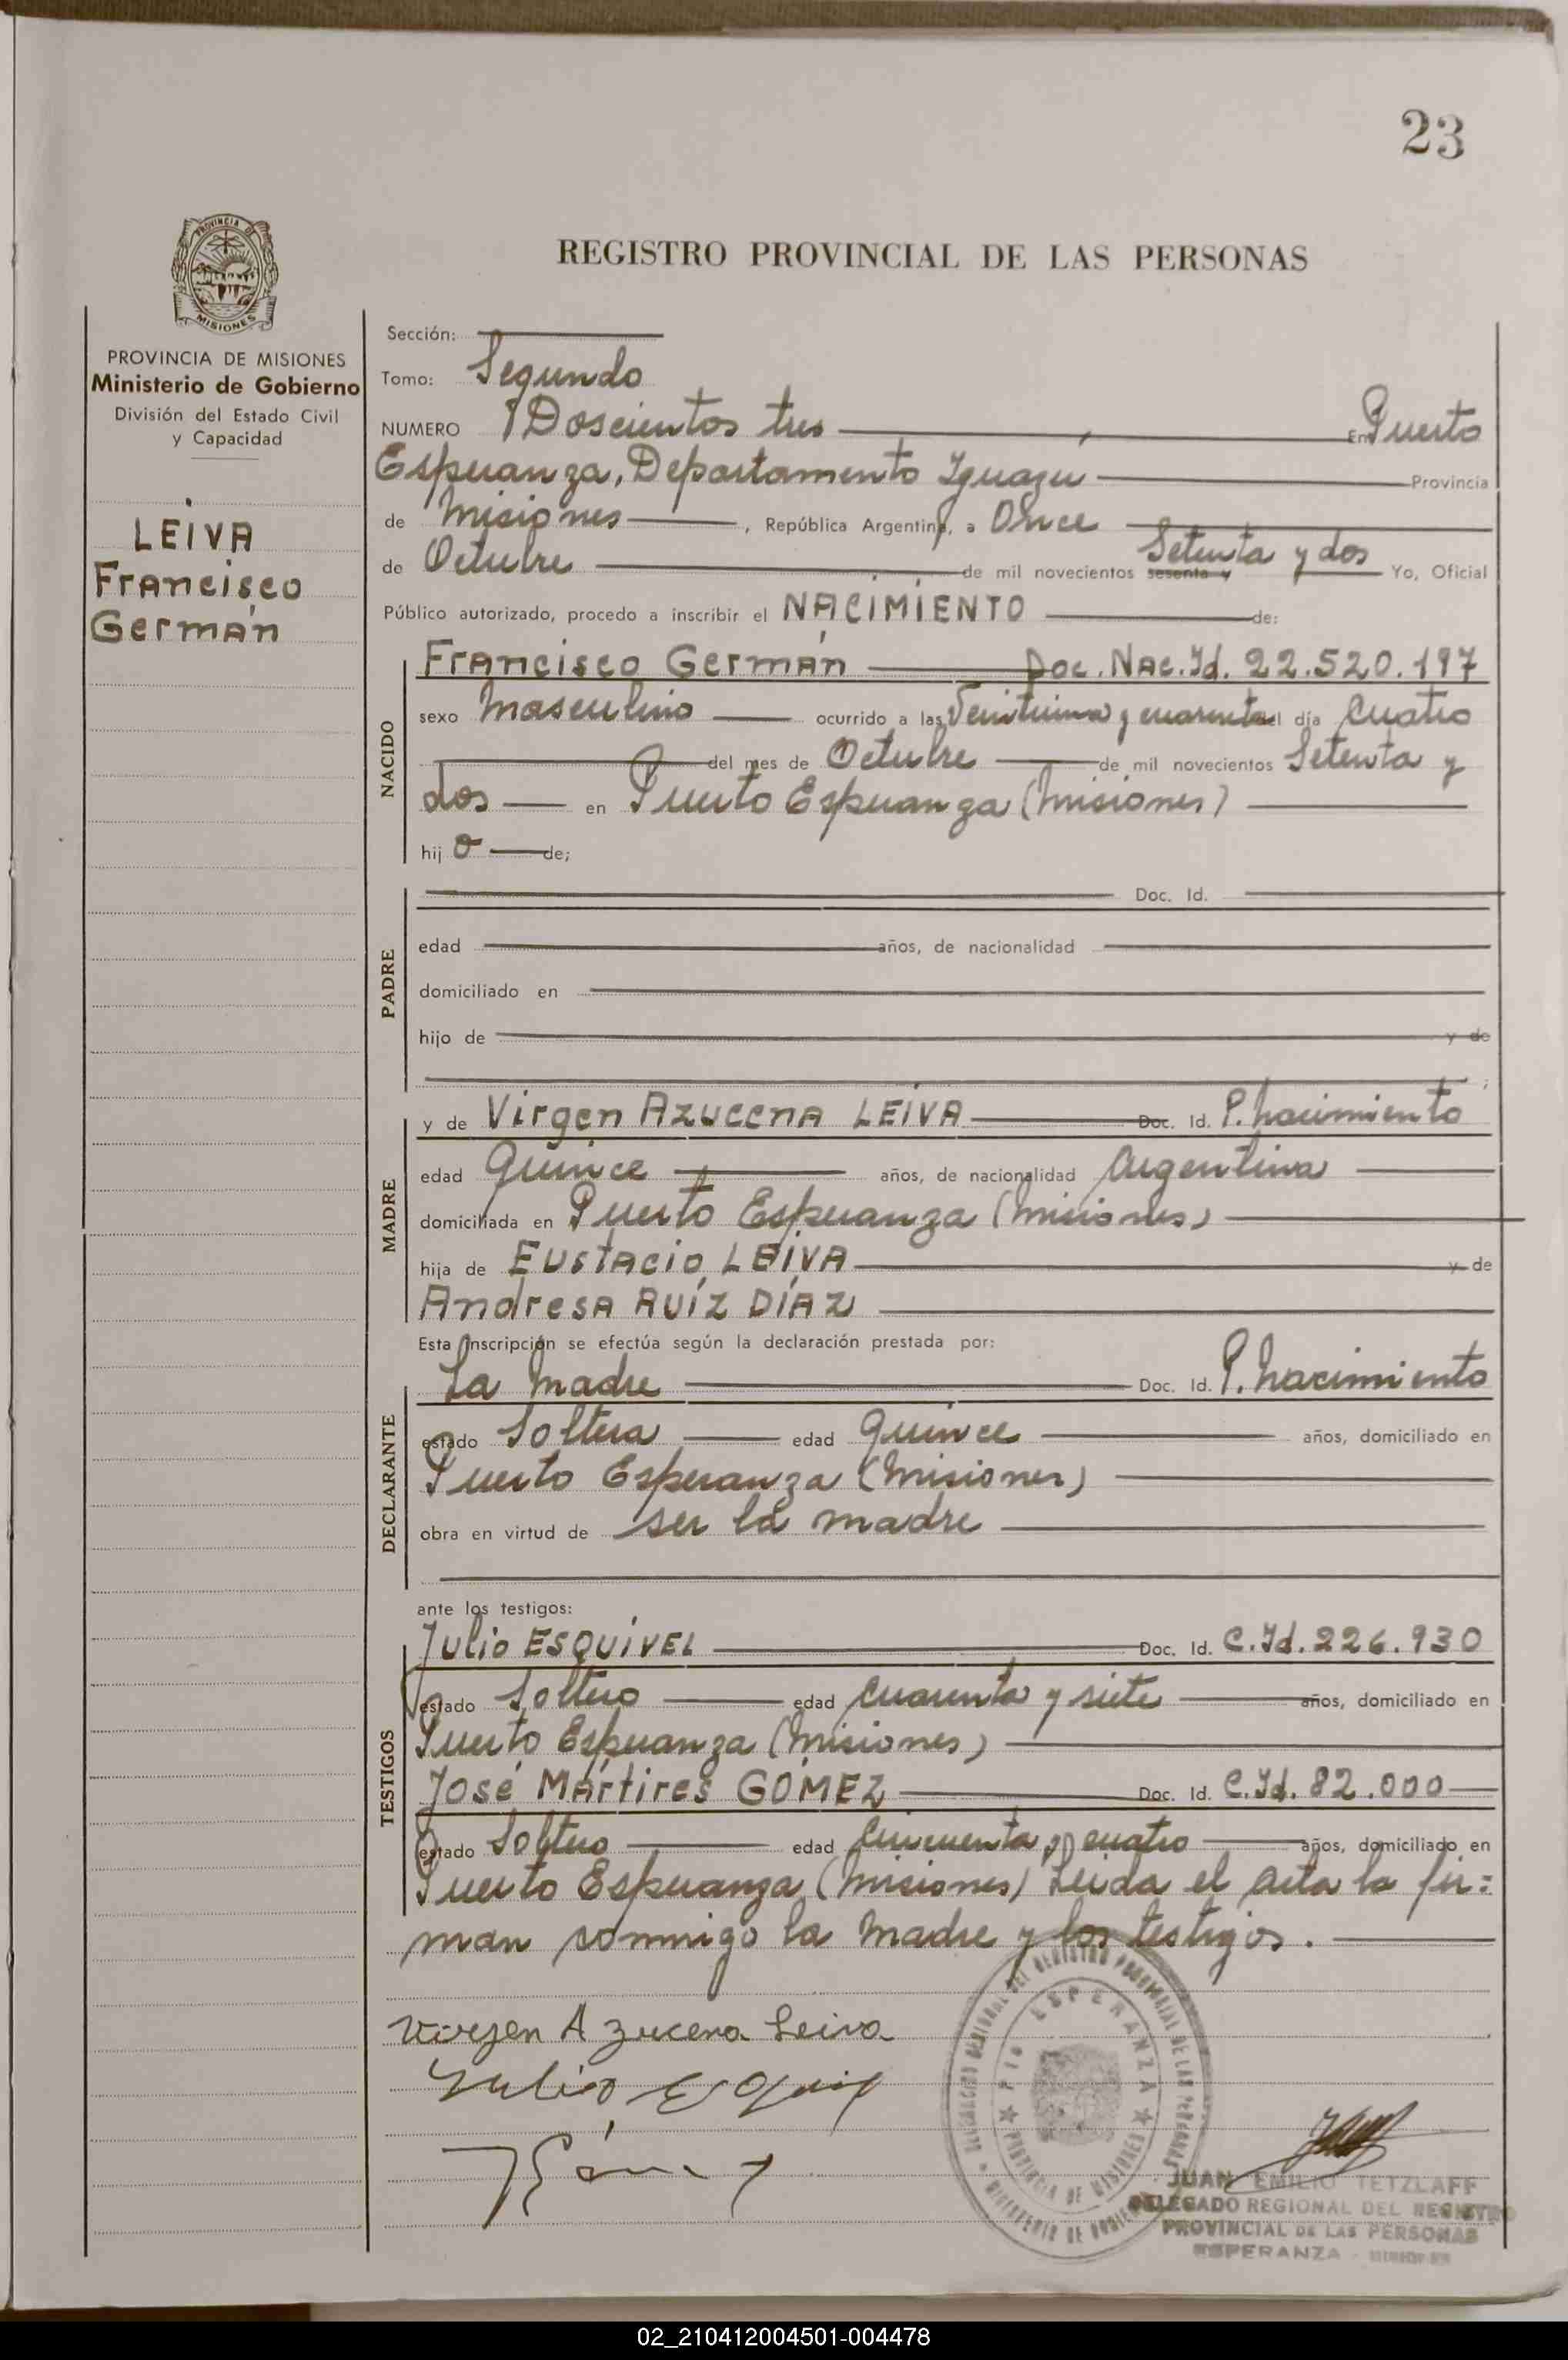 23
PROVINCIA DE
MISIONES
REGISTRO PROVINCIAL DE LAS PERSONAS
PROVINCIA DE MISIONES
Ministerio de Gobierno
División del Estado Civil
y Capacidad
LEIVA
Francisco
Germán
Sección:
Tomo: Segundo
NUMERO Doscientos tres En Puerto
Esperanza, Departamento Iguazú Provincia
de Misiones, República Argentina, a Once
de Octubre de mil novecientos sesenta y Setenta y dos Yo, Oficial
Público autorizado, procedo a inscribir el NACIMIENTO de:
NACIDO
Francisco Germán Doc. Nac. Id. 22.520.197
sexo Masculino ocurrido a las Veintiuna y cuarenta el día Cuatro
del mes de Octubre de mil novecientos Setenta y
dos en Puerto Esperanza (Misiones)
hij o de;
PADRE
Doc. Id.
edad años, de nacionalidad
domiciliado en
hijo de y de
;
MADRE
y de Virgen Azucena LEIVA Doc. Id. P. Nacimiento
edad Quince años, de nacionalidad Argentina
domiciliada en Puerto Esperanza (Misiones)
hija de Eustacio LEIVA y de
Andresa RUÍZ DÍAZ
Esta Inscripción se efectúa según la declaración prestada por:
DECLARANTE
La Madre Doc. Id. P. Nacimiento
estado Soltera edad Quince años, domiciliado en
Puerto Esperanza (Misiones)
obra en virtud de ser la madre
ante los testigos:
TESTIGOS
Julio ESQUIVEL Doc. Id. C.Id. 226.930
estado Soltero edad Cuarenta y siete años, domiciliado en
Puerto Esperanza (Misiones)
José Mártires GOMEZ Doc. Id. C.Id. 82.000
estado Soltero edad Cincuenta y cuatro años, domiciliado en
Puerto Esperanza (Misiones) Leida el acta la fir=
man conmigo la Madre y los testigos.
Virgen Azucena Leiva
Julio Esquiv
ESPERANZA
PROVINCIA DE MISIONES
JUAN EMILIO TETZLAFF
DELEGADO REGIONAL DEL REGISTRO
PROVINCIAL DE LAS PERSONAS
ESPERANZA - MISIONES
02_210412004501-004478